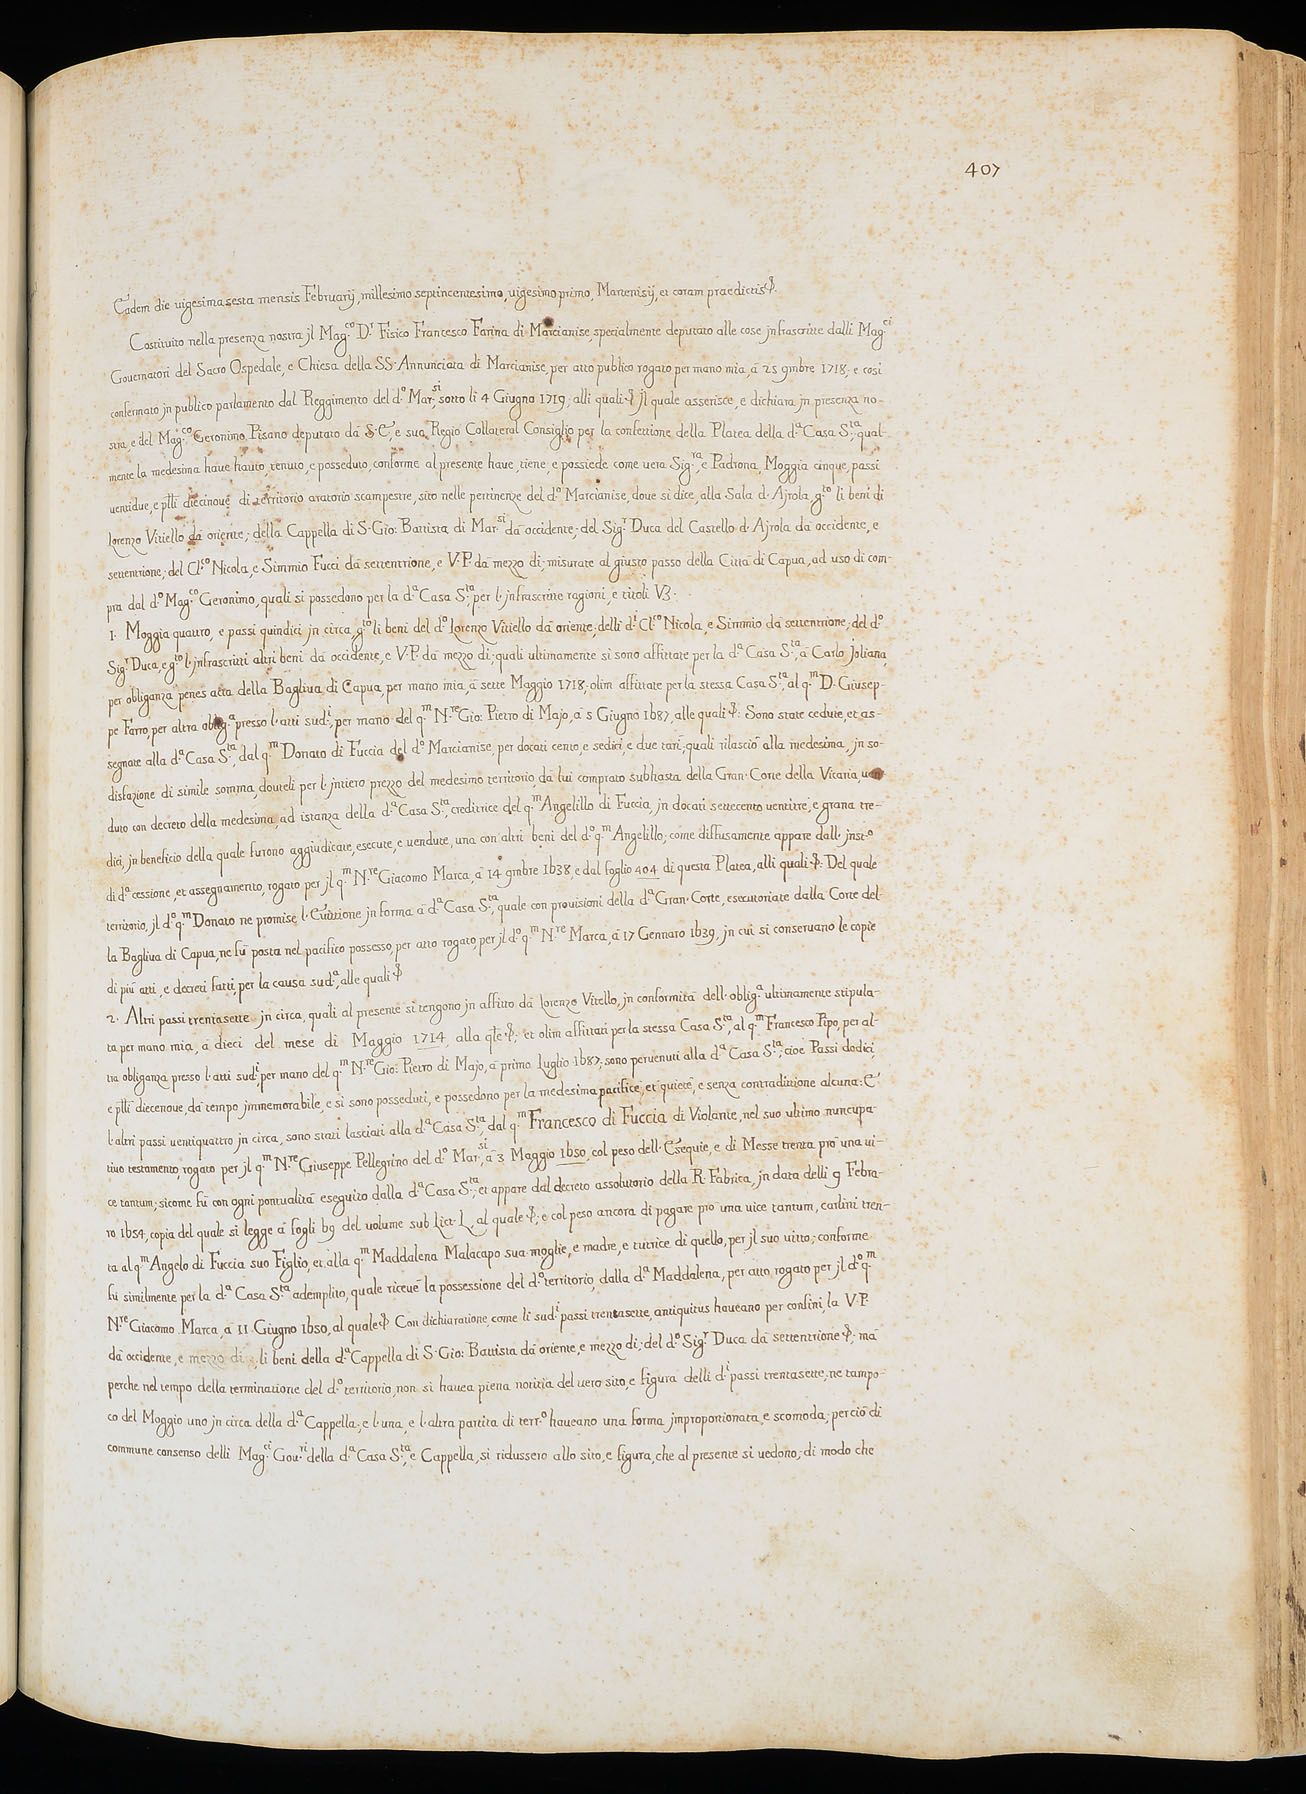 407
Eadem die uigesimasesta mensis Februarij, millesimo septincentesimo, uigesimo primo, Martenisij, et coram praedictis &.
Costituito nella presenza nostra jl Mag.co D.r Fisico Francesco Farina di Marcianise, specialmente deputato alle cose jnfrascritte dalli Mag.ci
Gouernatori del Sacro Ospedale, e Chiesa della SS. Annunciata di Marcianise, per atto publico rogato per mano mia, à 25 9mbre 1718; e così
confermato jn publico parlamento dal Reggimento del d.o Mar.si, sotto li 4 Giugno 1719, alli quali & jl quale asserisce, e dichiara jn presenza no-
stra, e del Mag.co Geronimo Pisano deputato dà S. E., e suo Regio Collateral Consiglio per la confettione della Platea della d.a Casa S.ta, qual-
mente la medesima haue hauto, tenuto, e posseduto, conforme al presente haue, tiene, e possiede come uera Sig.ra, e Padrona, Moggia cinque, passi
uentidue, e p̄lli diecinoue di territorio aratorio scampestre, sito nelle pertinenze del d.o Marcianise, doue si dice, alla Sala d. Ajrola, g.to li beni di
Lorenzo Vitiello dà oriente; della Cappella di S. Gio: Battista di Mar.si dà occidente; del Sig.r Duca del Castello d. Ajrola dà occidente, e
settentrione; del Cl.co Nicola, e Simmio Fucci dà settentrione, e V. P. dà mezzo dì; misurate al giusto passo della Città di Capua, ad uso di com-
pra dal d.o Mag.co Geronimo, quali si possedono per la d.a Casa S.ta, per l. jnfrascritte ragioni, e titoli V3.
1. Moggia quattro, e passi quindici jn circa, g.to li beni del d.o Lorenzo Vitiello dà oriente; delli d.i Cl.co Nicola, e Simmio dà settentrione; del d.o
Sig.r Duca, e g.to l. jnfrascritti altri beni dà occidente, e V. P. dà mezzo dì; quali ultimamente si sono affittate per la d.a Casa S.ta, à Carlo Joliana,
per obliganza penes acta della Bagliua di Capua, per mano mia, à sette Maggio 1718; olim affittate per la stessa Casa S.ta, al q.m D. Giusep-
pe Farro, per altra oblig.a presso l. atti sud.i, per mano del q.m N.re Gio: Pietro di Majo, à 5 Giugno 1687, alle quali &: Sono state cedute, et as-
segnate alla d.a Casa S.ta, dal q.m Donato di Fuccia del d.o Marcianise, per docati cento, e sedici, e due tarì, quali rilasciò alla medesima, jn so-
disfazione di simile somma, doutoli per l. jntiero prezzo del medesimo territorio, dà lui comprato subhasta della Gran. Corte della Vicaria, uen-
duto con decreto della medesima, ad istanza della d.a Casa S.ta, creditrice del q.m Angelillo di Fuccia, jn docati settecento uentitre, e grana tre-
dici, jn beneficio della quale furono aggiudicate, esecute, e uendute, una con altri beni del d.o q.m Angelillo; come diffusamente appare dall. jnst.o
di d.a cessione, et assegnamento, rogato per jl q.m N.re Giacomo Marca, à 14 9mbre 1638, e dal foglio 404 di questa Platea, alli quali &: Del quale
territorio, jl d.o q.m Donato ne promise l. Euittione jn forma à d.a Casa S.ta, quale con prouisioni della d.a Gran. Corte, esecutoriate dalla Corte del
la Bagliua di Capua, ne fù posta nel pacifico possesso, per atto rogato, per jl d.o q.m N.re Marca, à 17 Gennaro 1639, jn cui si conseruano le copie
di più atti, e decreti fatti, per la causa sud.a, alle quali &
2. Altri passi trentasette jn circa, quali al presente si tengono jn affitto dà Lorenzo Vitello, jn conformità dell. oblig.a ultimamente stipula-
ta per mano mia, à dieci del mese di Maggio 1714, alla q̄le &; et olim affittati per la stessa Casa S.ta, al q.m Francesco Pipo, per al-
tra obliganza presso l. atti sud.i, per mano del q.m N.re Gio: Pietro di Majo, à primo Luglio 1687; sono peruenuti alla d.a Casa S.ta; cioè Passi dodici,
e p̄lli diecenoue, dà tempo jmmemorabile, e si sono posseduti, e possedono per la medesima pacificè, et quietè, e senza contradittione alcuna: E'
l. altri passi uentiquattro jn circa, sono stati lasciati alla d.a Casa S.ta, dal q.m Francesco di Fuccia di Violante, nel suo ultimo nuncupa-
tiuo testamento, rogato per jl q.m N.re Giuseppe Pellegrino del d.o Mar.si, à 3 Maggio 1650, col peso dell. Esequie, e di Messe trenta prò una ui-
ce tantum; sicome fù con ogni pontualità eseguito dalla d.a Casa S.ta, et appare dal decreto assolutorio della R. Fabrica, jn data delli 9 Febra-
ro 1654, copia del quale si legge à fogli 69 del uolume sub Lict. L, al quale &; e col peso ancora di pagare prò una uice tantum, carlini tren-
ta al q.m Angelo di Fuccia suo Figlio, et alla q.m Maddalena Malacapo sua moglie, e madre, e tutrice di quello, per jl suo uitto; conforme
fù similmente per la d.a Casa S.ta adempito, quale riceuè la possessione del d.o territorio, dalla d.a Maddalena, per atto, rogato per jl d.o q.m
N.re Giacomo Marca, à 11 Giugno 1650, al quale & Con dichiaratione, come li sud.i passi trentasette, antiquitus haueano per confini, la V. P.
dà occidente, e mezzo dì, li beni della d.a Cappella di S. Gio: Battista dà oriente, e mezzo dì; del d.o Sig.r Duca dà settentrione &; mà
perche nel tempo della terminatione del d.o territorio, non si hauea piena notitia del uero sito, e figura delli d.i passi trentasette, ne tampo-
co del Moggio uno jn circa della d.a Cappella; e l. una, e l. altra partita di terr.o haueano una forma jmproportionata, e scomoda; perciò di
commune consenso delli Mag.ci Gou.ri della d.a Casa S.ta, e Cappella, si ridussero allo sito, e figura, che al presente si uedono; di modo che